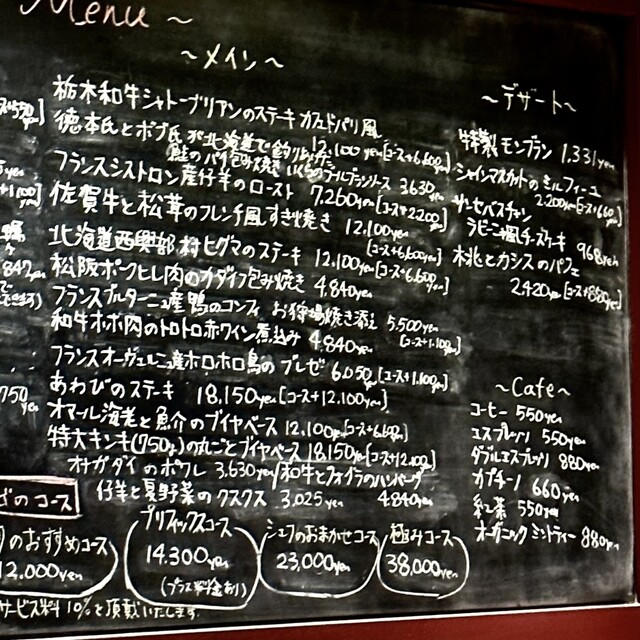 Menu ~
~メイン~
栃木和牛シャトーブリアンのステーキ カフェドパリ風
12,100 yen [コース+6,600yen]
徳本氏とボブ氏が北海道で釣り上げた
鮭のパイ包み焼き いくらのブールブランソース 3,630yen
フランスシストロン産仔羊のロースト 7,260yen [コース+2,200yen]
佐賀牛と松茸のフレンチ風すき焼き 12,100yen
[コース+6,600yen]
北海道西興部村ヒグマのステーキ 12,100yen [コース+6,600yen]
松阪ポークヒレ肉のカダイフ包み焼き 4,840yen
フランスブルターニュ産鴨のコンフィ お狩場焼き添え 5,500yen
[コース+1,100yen]
和牛ホホ肉のトロトロ赤ワイン煮込み 4,840yen
フランスオーヴェルニュ産ホロホロ鳥のブレゼ 6,050yen [コース+1,100yen]
あわびのステーキ 18,150yen [コース+12,100yen]
オマール海老と魚介のブイヤベース 12,100yen [コース+6,600yen]
特大キンキ(750g)の丸ごとブイヤベース 18,150yen [コース+12,100yen]
オナガダイのポワレ 3,630yen/和牛とフォアグラのハンバーグ
4,840yen
仔羊と夏野菜のクスクス 3,025yen
~デザート~
特製モンブラン 1,331yen
シャインマスカットのミルフィーユ
2,200yen [コース+660yen]
サンセバスチャン
ラビーニャ風チーズケーキ 968yen
桃とカシスのパフェ
2,420yen [コース+880yen]
~Cafe~
コーヒー 550yen
エスプレッソ 550yen
ダブルエスプレッソ 880yen
カプチーノ 660yen
紅茶 550yen
オーガニックミントティー 880yen
のコース
のおすすめコース
12,000yen
プリフィックスコース
14,300yen
(プラス料金あり)
シェフのおまかせコース
23,000yen
極みコース
38,000yen
サービス料10%を頂戴いたします.